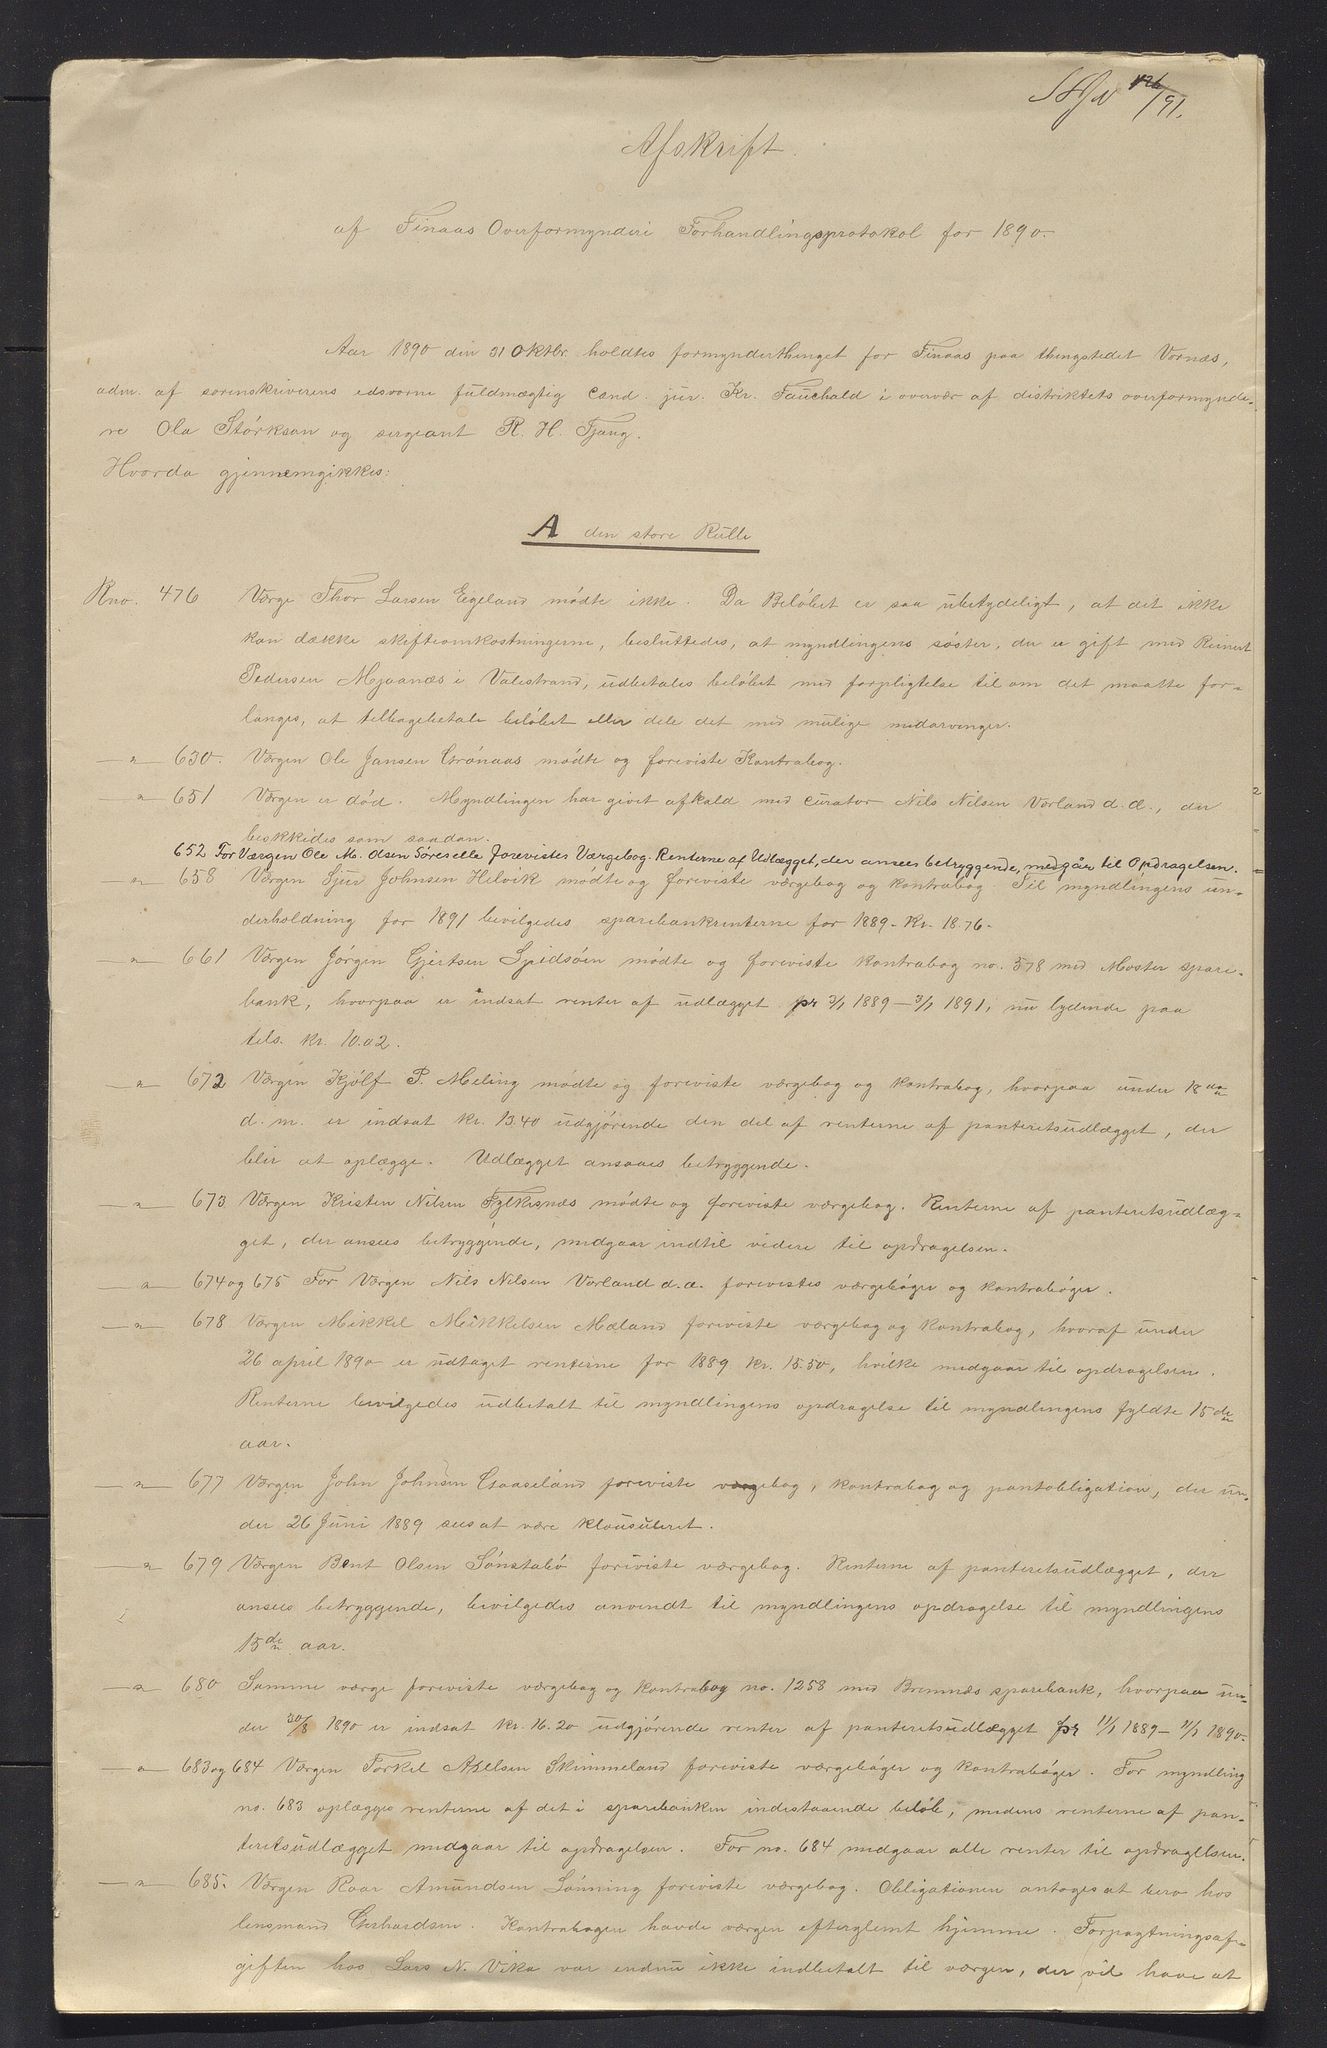 126/91.
Afskrift
af Finaas Overformynderi Forhandlingsprotokol for 1890.
Aar 1890 den 31 Oktbr. holdtes formynderthinget for Finaas paa thingstedet Vornæs,
adm. af sorenskriverens edsvorne fuldmægtig Cand. jur. Kr. Fauchald i overvær af distriktets overformynde-
re Ola Størksøn og sergeant R. H. Tjong.
Hvorda gjennemgikkes:
A den store Rulle
Rno. 476 Værge Thor Larsen Eigeland mødte ikke. Da Beløbet er saa ubetydeligt, at det ikke
kan dække skifteomkostningerne, besluttedes, at myndlingens søster, der er gift med Reinert
Pedersen Mjaanæs i Valestrand, udbetales beløbet med forpligtelse til om det maatte for-
langes, at tilbagebetale beløbet eller dele det med mulige medarvinger.
— " — 630. Værgen Ole Jansen Grønaas mødte og foreviste Kontrabog.
— " — 651 Værgen er død. Myndlingen har givet afkald med curator Nils Nilsen Vorland d. æ., der
beskikkedes som saadan.
652 For Værgen Ole M. Olsen Søreselle forevistes Værgebog. Renterne af Udlægget, der ansees betryggende, medgaar til Opdragelsen.
— " — 658 Værgen Sjur Johnsen Helvik mødte og foreviste værgebog og kontrabog. Til myndlingens un-
derholdning for 1891 bevilgedes sparebankrenterne for 1889 - Kr. 18.76 -
— " — 661 Værgen Jørgen Gjertsen Spidsøen mødte og foreviste kontrabog no. 578 med Moster spare-
bank, hvorpaa er indsat renter af udlægget pr 3/1 1889 - 3/1 1891, nu lydende paa
tils. kr. 10.02.
— " — 672 Værgen Kjølf P. Meling mødte og foreviste værgebog og kontrabog, hvorpaa under 18de
d. m. er indsat kr. 13.40 udgjørende den del af renterne af panteretsudlægget, der
blir at oplægge. Udlægget ansaaes betryggende.
— " — 673 Værgen Kristen Nilsen Fylkesnæs mødte og foreviste værgebog. Renterne af panteretsudlæg-
get, der ansees betryggende, medgaar indtil videre til opdragelsen.
— " — 674 og 675 For Værgen Nils Nilsen Vorland d. æ. forevistes værgebøger og kontrabøger.
— " — 678 Værgen Mikkel Mikkelsen Mæland foreviste værgebog og kontrabog, hvoraf under
26 april 1890 er udtaget renterne for 1889 kr. 15.50, hvilke medgaar til opdragelsen.
Renterne bevilgedes udbetalt til myndlingens opdragelse til myndlingens fyldte 15de
aar.
— " — 677 Værgen John Johnsen Gaaseland foreviste værgebog, kontrabog og pantobligation, der un-
der 26 Juni 1889 sees at være klausuleret.
— " — 679 Værgen Bent Olsen Sønstabø foreviste værgebog. Renterne af panteretsudlægget, der
ansees betryggende, bevilgedes anvendt til myndlingens opdragelse til myndlingens
15de aar.
— " — 680 Samme værge foreviste værgebog og kontrabog no. 1258 med Bremnæs sparebank, hvorpaa un-
der 30/8 1890 er indsat kr. 16.20 udgjørende renter af panteretsudlægget pr 11/1 1889 - 11/1 1890.
— " — 683 og 684 Værgen Torkel Axelsen Skimmeland foreviste værgebøger og kontrabøger. For myndling
no. 683 oplægges renterne af det i sparebanken indestaaende beløb, medens renterne af pan-
teretsudlægget medgaar til opdragelsen. For no. 684 medgaar alle renter til opdragelsen.
— " — 685. Værgen Roar Amundsen Lønning foreviste værgebog. Obligationen antages at bero hos
lensmand Gerhardsen. Kontrabogen havde værgen efterglemt hjemme. Forpagtningsaf-
giften hos Lars N. Vika var endnu ikke indbetalt til værgen, der vil have at